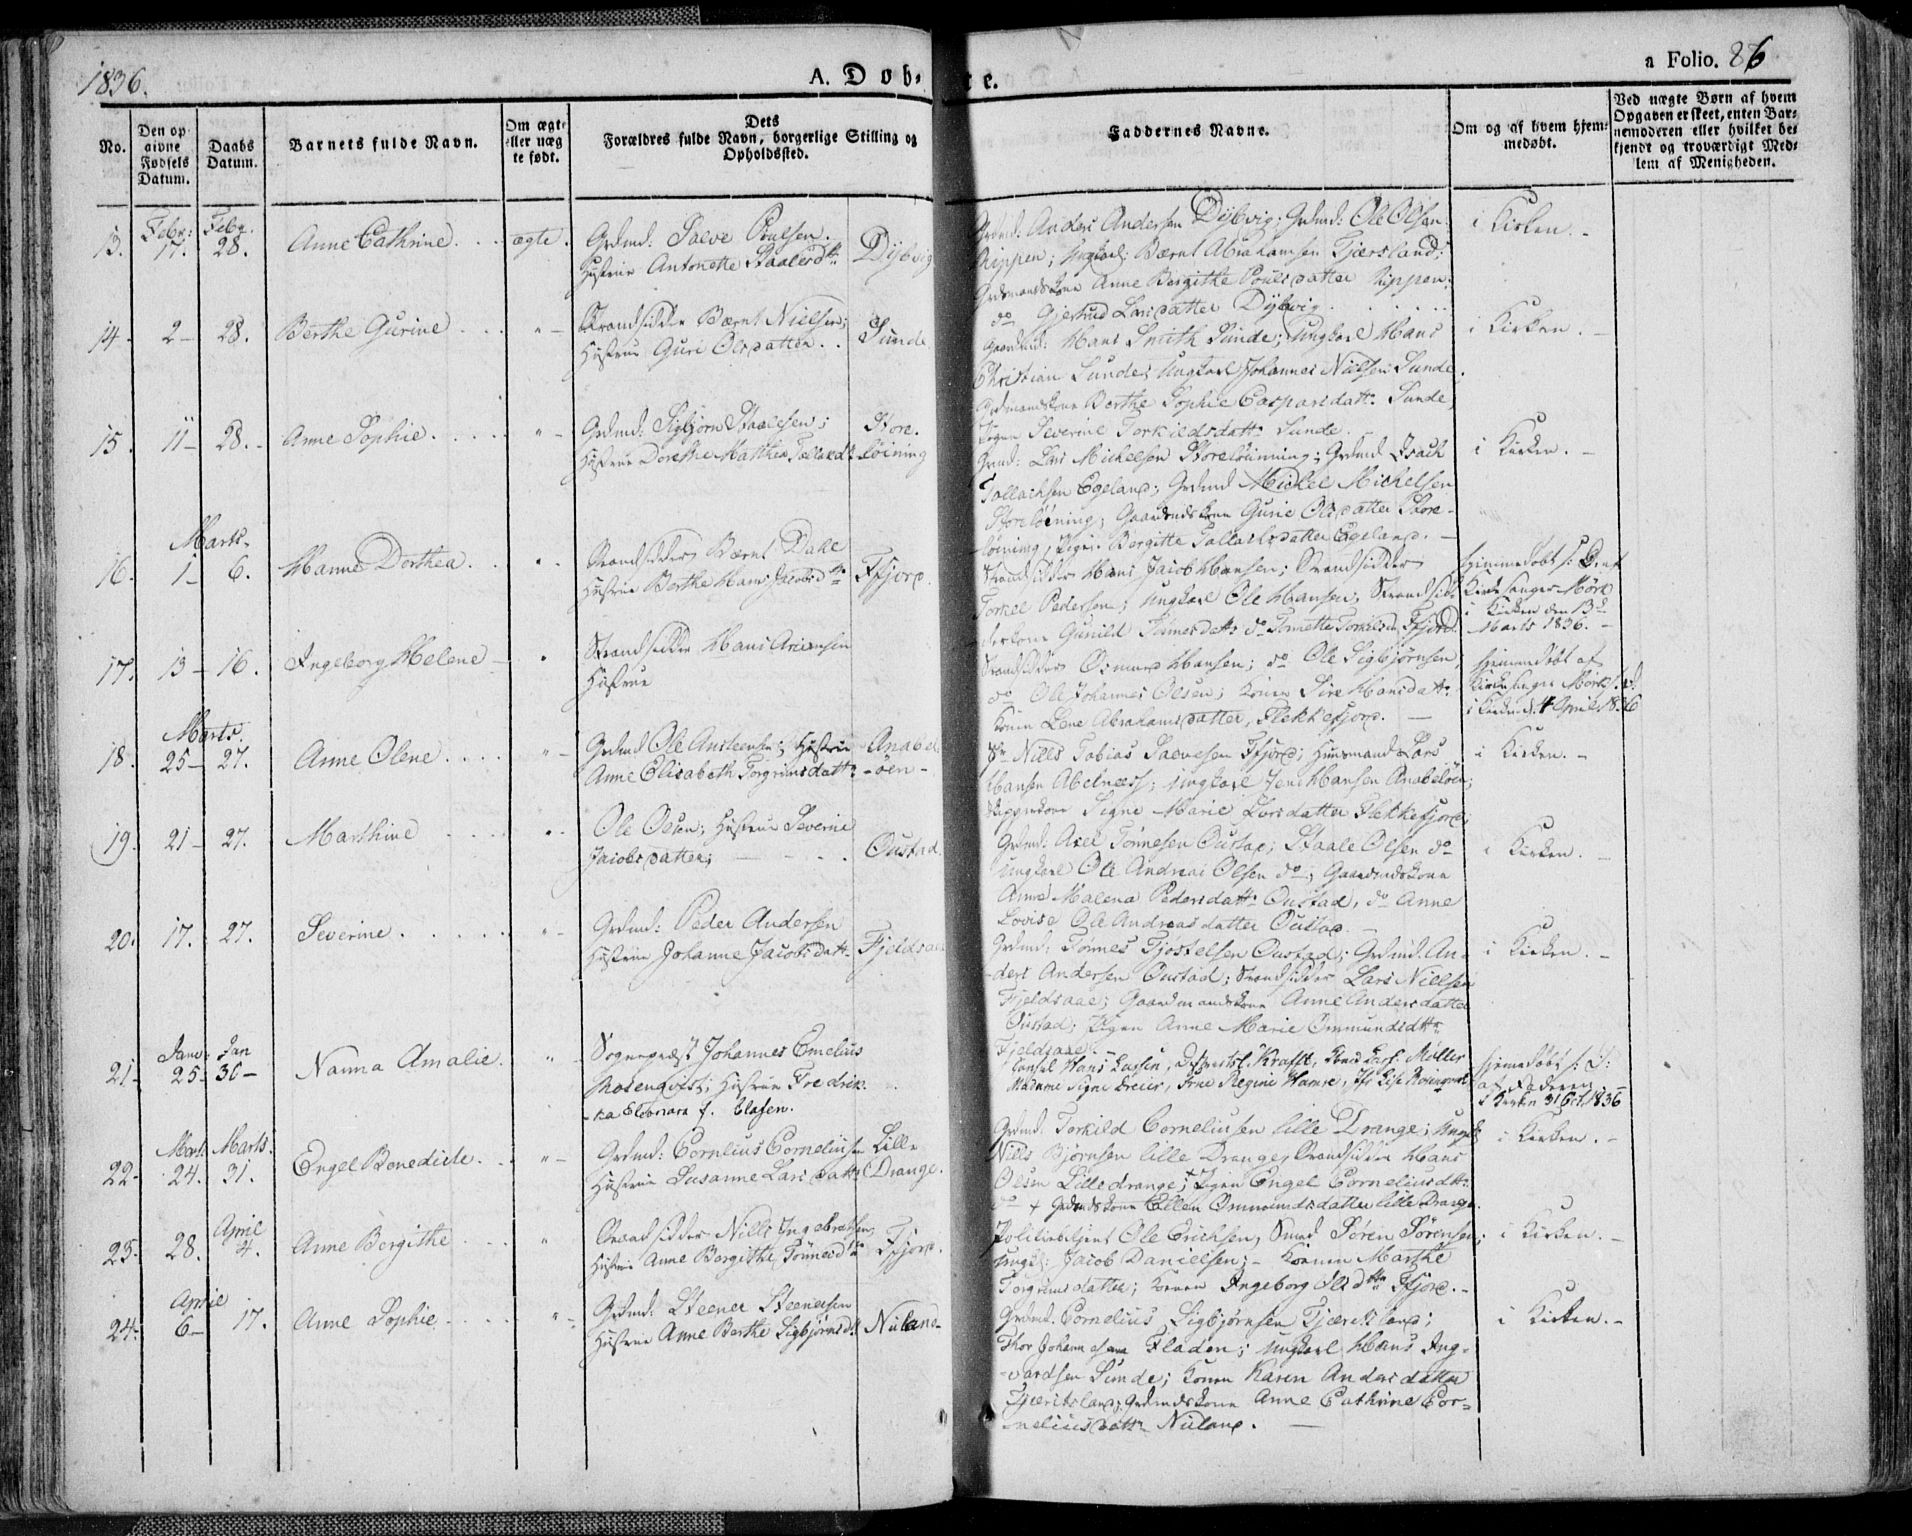 1836.
A. Døb-
te.
a Folio. 86
No.
Den op
givne
Fødsels
Datum.
Daabs
Datum.
Barnets fulde Navn.
Om ægte
eller næg
te født.
Dets
Forældres fulde Navn, borgerlige Stilling og
Opholdssted.
Faddernes Navne.
Om og af hvem hjem-
medøbt.
Ved uægte Børn af hvem
Opgaven er skeet, enten Bar-
nemoderen eller hvilket be-
kjendt og troværdigt Med-
lem af Menigheden.
Febr: Febr.
13. 17. 28. Anne Cathrine. ægte. Grdmd: Salve Poulsen.
Hustrue Antonette Staalesdtr. Dybvig
Grdmd. Anders Andersen Dybvig; Grdmd: Ole Olsen
Rippen; Ungkarl: Bærnt Abrahamsen Fjærsland;
Grdmandskone Anne Bergithe Poulsdatter Rippen;
do Gjertrud Larsdatter Dybvig
i Kirken. -
14. 2 - 28. Berthe Gurine " - Strandsidder Bærnt Nielsen;
Hustrue Guri Olsdatter. Sunde
Gaardmd: Hans Smith Sunde; Ungkarl Hans
Christian Sunde; Ungkarl Johannes Nielsen Sunde.
Grdmandskone Berthe Sophie Caspersdatt. Sunde,
Pigen Severine Torkildsdatt. Sunde.
i Kirken. -
15. 11 - 28. - Anne Sophie. " - Grdmd: Sigbjørn Staalesen;
Hustrue Dorethe Mathea Tollacdtr. Store-
løining
Grmd: Lars Michelsen Storeløinning; Grdmd Isach
Tollachsen Egeland; Grdmd Michel Michelsen
Storeløining; Gaardmdskone Gurie Olsdatter Store-
løining, Pigen Bergitte Tollachsdatter Egeland. -
i Kirken. -
Marts.
16. 1 - 6. Hanne Dorthea. " Strandsidder Bærnt Dahl
Hustrue Berthe Hans Jacobsdtr. Ffjord.
Strandsidder Hans Jacob Hansen; Strandsidder
Torkel Pedersen; Ungkarl Ole Hansen; Strandsid-
derkone Gunild do Tonette Ffjord.
hjemmedøbt s: D. af
Kirkesanger Mørk
i Kirken den 13d
Marts 1836. -
17. 13 - 16. Ingeborg Helene " Strandsidder Hans Ariansen
Hustrue
Strandsidder Osmund Hansen; do Ole Sigbjørnsen,
do Ole Johannes Olsen; Konen Sire Hansdatt.
Konen Lene Abrahamsdatter, Flekkefjord. -
hjemmedøbt af
Kirkesanger Mørk
i Kirken d. 4 April 1836
Marts.
18. 25 - 27. Anne Olene. " - Grdmd Ole Austeensen; Hustrue
Anne Elisabeth Torgrimsdatt. Anabel-
øen -
Nills Tobias Salvesen Ffjord; Huusmand Lars
Hansen Abelnæss; Ungkarl Jens Hansen Anabeløen;
Skipperkone Signe Marie Larsdatter Flekkefjord.
i Kirken. -
19. 21 - 27. Marthine " Ole Olsen; Hustrue Severine
Jacobsdatter; Oustad.
Grdmd. Axel Tønnesen Oustad; Staale Olsen do
Ungkarl Ole Andreas Olsen do; Gaardmdskone
Anne Malena Pedersdatt. Oustad, do Anne
Lovise Ole Andreasdatter Oustad.
i Kirken. -
20. 17. 27. Severine. " - Grdmd: Peder Andersen
Hustrue Johanne Jacobsdatt. Fjeldsaae
Grdmd. Tønnes Tjostelsen Oustad; Grdmd. An-
ders Andersen Oustad; Strandsidder Lars Nielsen
Fjeldsaae; Gaardmandskone Anne Andersdatter
Oustad; Pigen Anne Marie Ommundsdtr.
Fjeldsaae. -
i Kirken. -
Janv: Jan
21 - 25 - 30 - Nanna Amalie. " - Sognepræst Johannes Emelius
Rosenqvist; Hustrue Fredrik-
ka Eleonora f. Clasen.
Consul Hans Larsen, Krafft, Møller
Madame Signe Dreier, Regine
hjemmedøbt s: D:
af Faderen.
i Kirken 31 Oct. 1836
Mart. Marts.
22. 24. 31. Engel Benedicte. " - Grdmd: Cornlius Corneliusen
Hustrue Susanne Larsdatt. Lille
Drange.
Grdmd. Torkild Corneliusen lille Drange; Ungk.
Nills Bjørnsen lille Drange, Strandsidder Hans
Olsen Lilledrange; + Pigen Engel Corneliusdtr.
do + Grdmdskone Ellen Ommundsdatter lille Drange.
i Kirken. -
April
23. 28. 4. Anne Bergithe " Strandsidder Nills Ingebretsen;
Hustrue Anne Bergithe Tønnesdtr. Ffjord.
Politiebetjent Ole Erichsen, Smed Søren Sørensen;
Ungk: Jacob Danielsen; - Konen Marthe
Torgrimsdatter; Konen Ingeborg Olsdtr Ffjord. -
i Kirken. -
April
24. 6 - 17. Anne Sophie " - Grdmd: Steener Steenersen
Hustrue Anne Berthe Sigbjørnsd. Nuland -
Grdmd. Cornelius Sigbjørnsen Tjæritsland;
Thor Johannesen Fladen; Ungkarl Hans Ing-
vardsen Sunde; Konen Karen Andersdatter
Tjæritsland; Grdmdskone Anne Cathrine Cor-
neliusdatt. Nuland. -
i Kirken. -